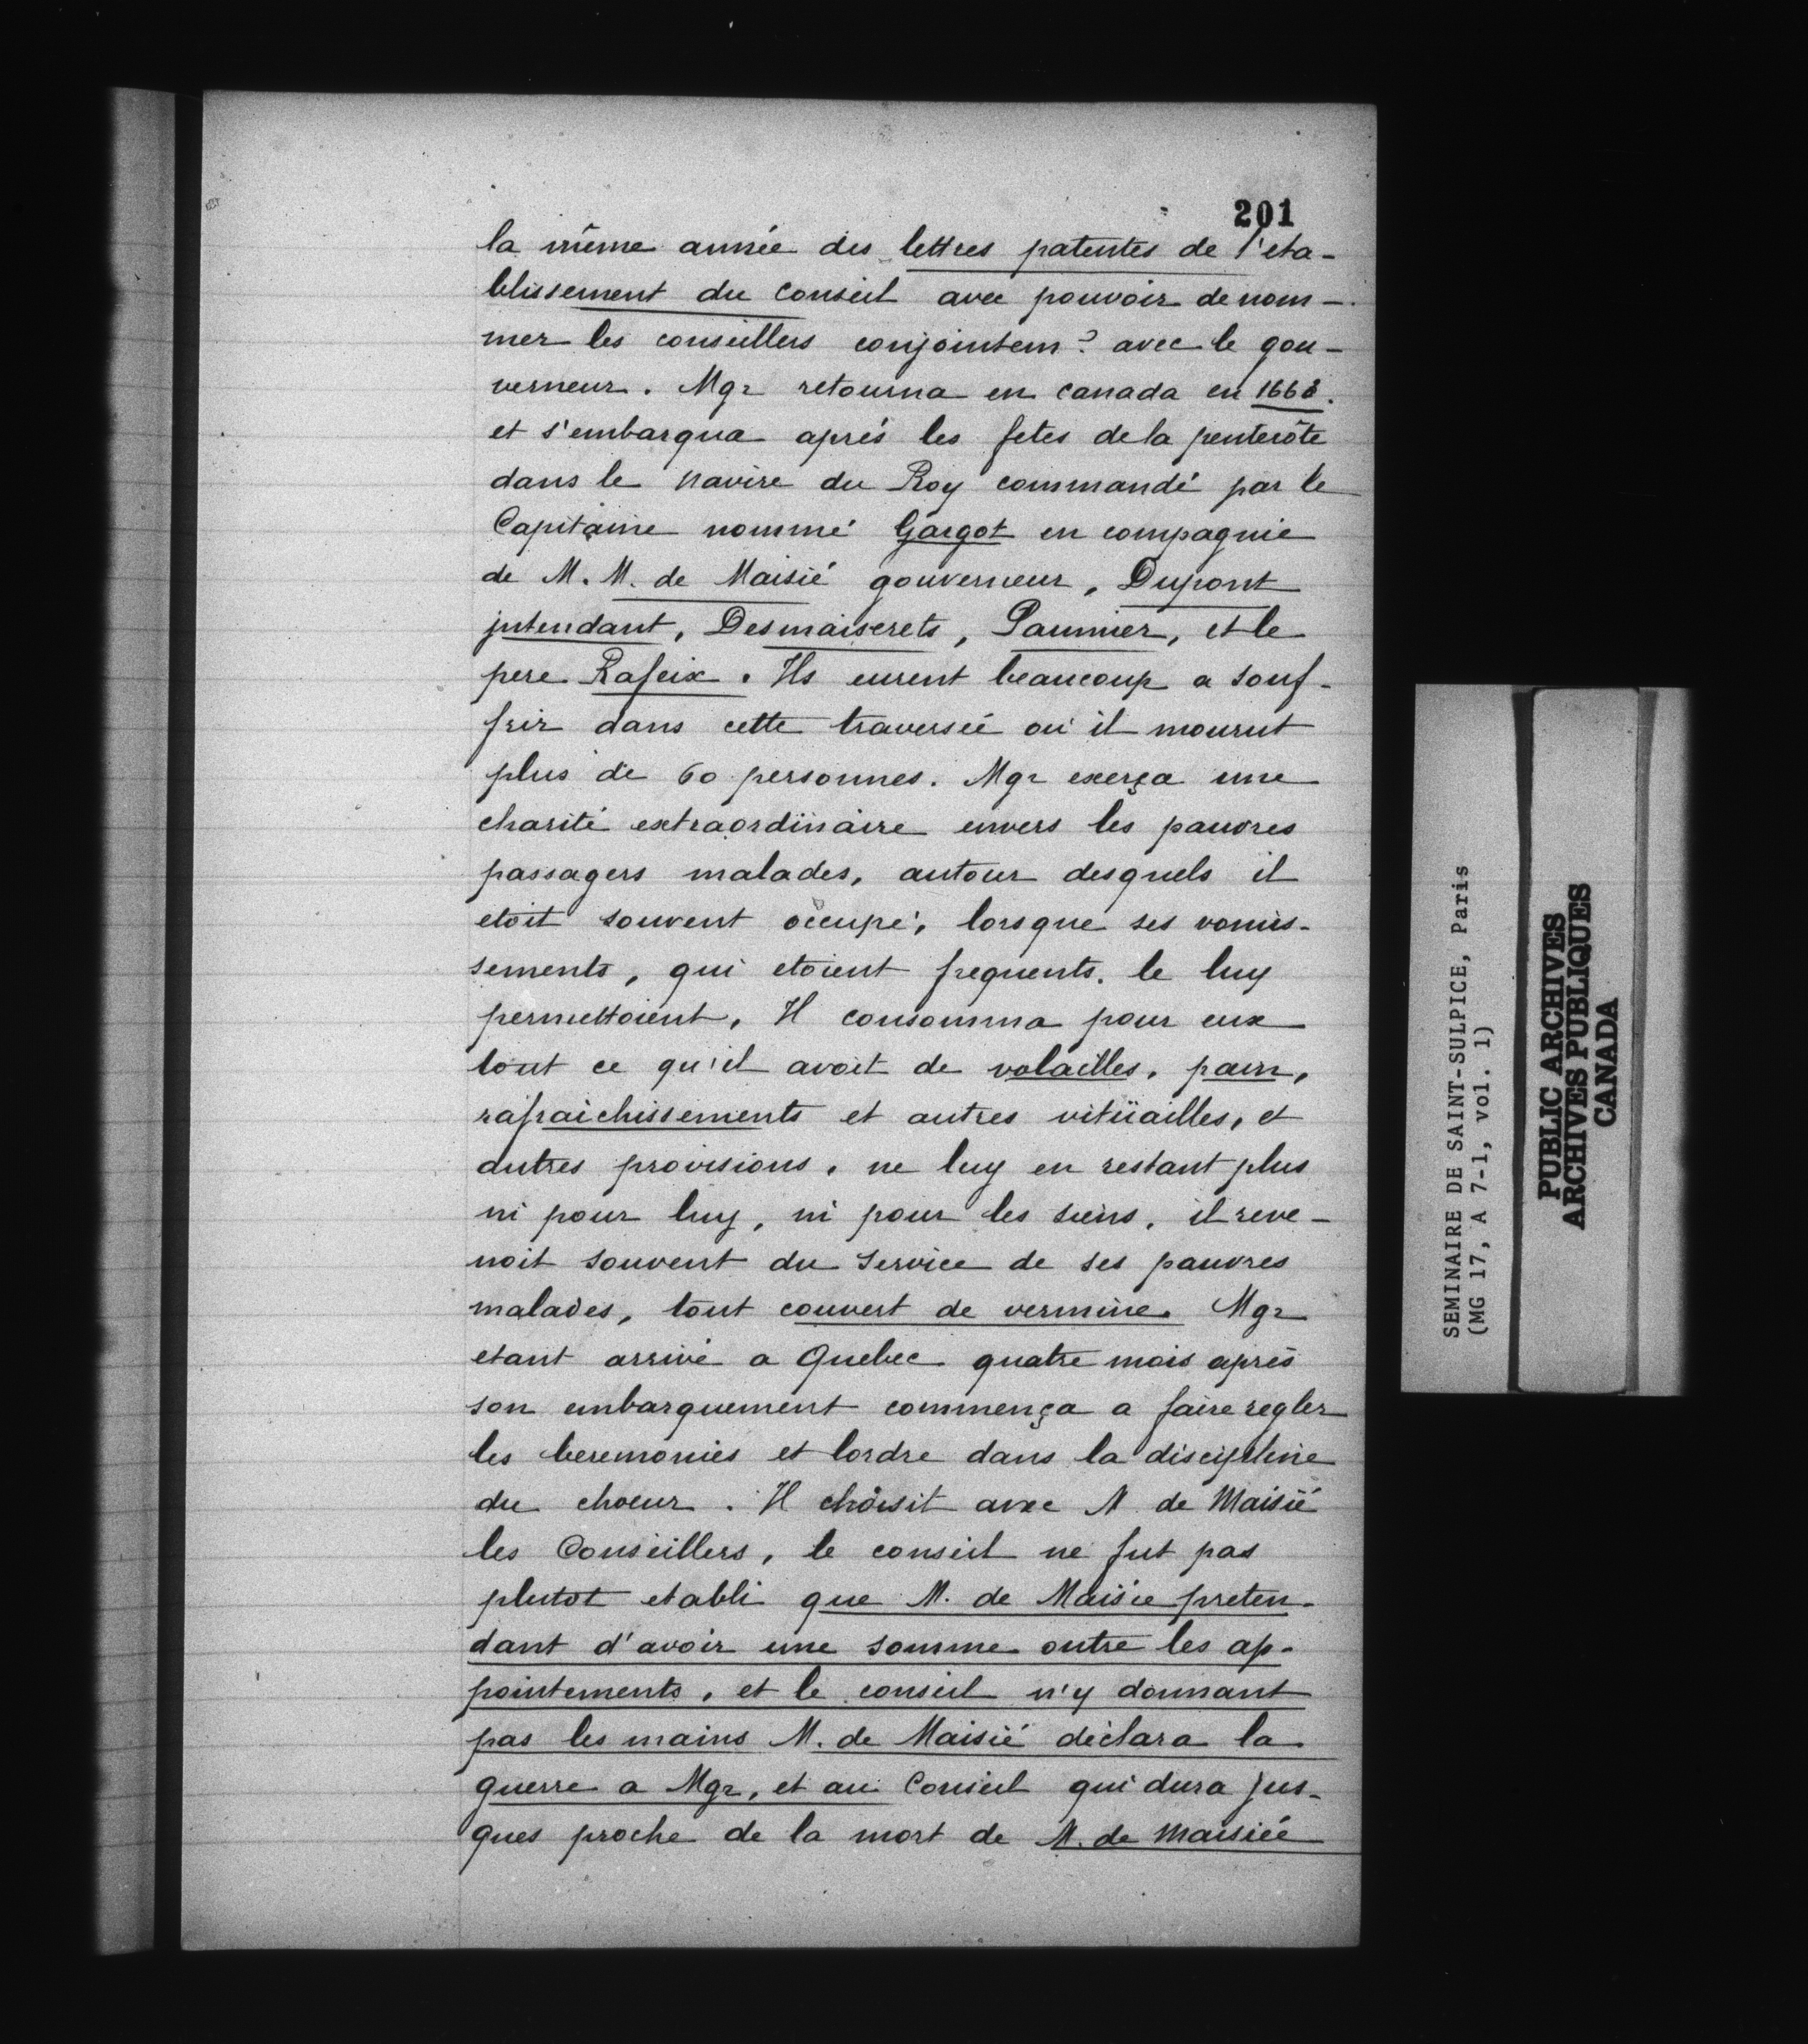 201
la même année des lettres patentes de l'eta-
blissement du Conseil avec pouvoir de nom-
mer les conseillers conjointem? avec le gou-
verneur. Mgr retourna en canada en 1663.
et s'embarqua aprés les fetes de la pentecôte
dans le navire du Roy commandé par le
Capitaine nommé Gargot en compagnie
de M. M. de Maisié gouverneur, Dupont
jntendant, Desmaiserets, Saumier, et le
pere Rafeix. Ils eurent beaucoup a souf-
frir dans cette traversée où il mourut
plus de 60 personnes. Mgr exerça une
charité extraordinaire envers les pauvres
passagers malades, autour desquels il
etoit souvent occupé, lorsque ses vomis-
sements, qui etoient frequents. le luy
permettoient. Il consomma pour eux
tout ce qu'il avoit de volailles, pain,
rafraichissements et autres vitüailles, et
autres provisions, ne luy en restant plus
ni pour luy, ni pour les siens, il reve-
noit souvent du service de ses pauvres
malades, tout couvert de vermine. Mgr
etant arrivé a Quebec quatre mois aprés
son embarquement commença a faire regler
les ceremonies et lordre dans la discipline
du choeur. Il choisit avec M de Maisié
les Conseillers, le conseil ne fut pas
plutot etabli que M. de Maisie preten-
dant d'avoir une somme outre les ap-
pointements, et le conseil n'y donnant
pas les mains M. de Maisié déclara la
guerre a Mgr, et au Conseil qui dura jus-
ques proche de la mort de M. de Maisiée
SEMINAIRE DE SAINT-SULPICE, Paris
(MG 17, A 7-1, vol. 1)
PUBLIC ARCHIVES
ARCHIVES PUBLIQUES
CANADA